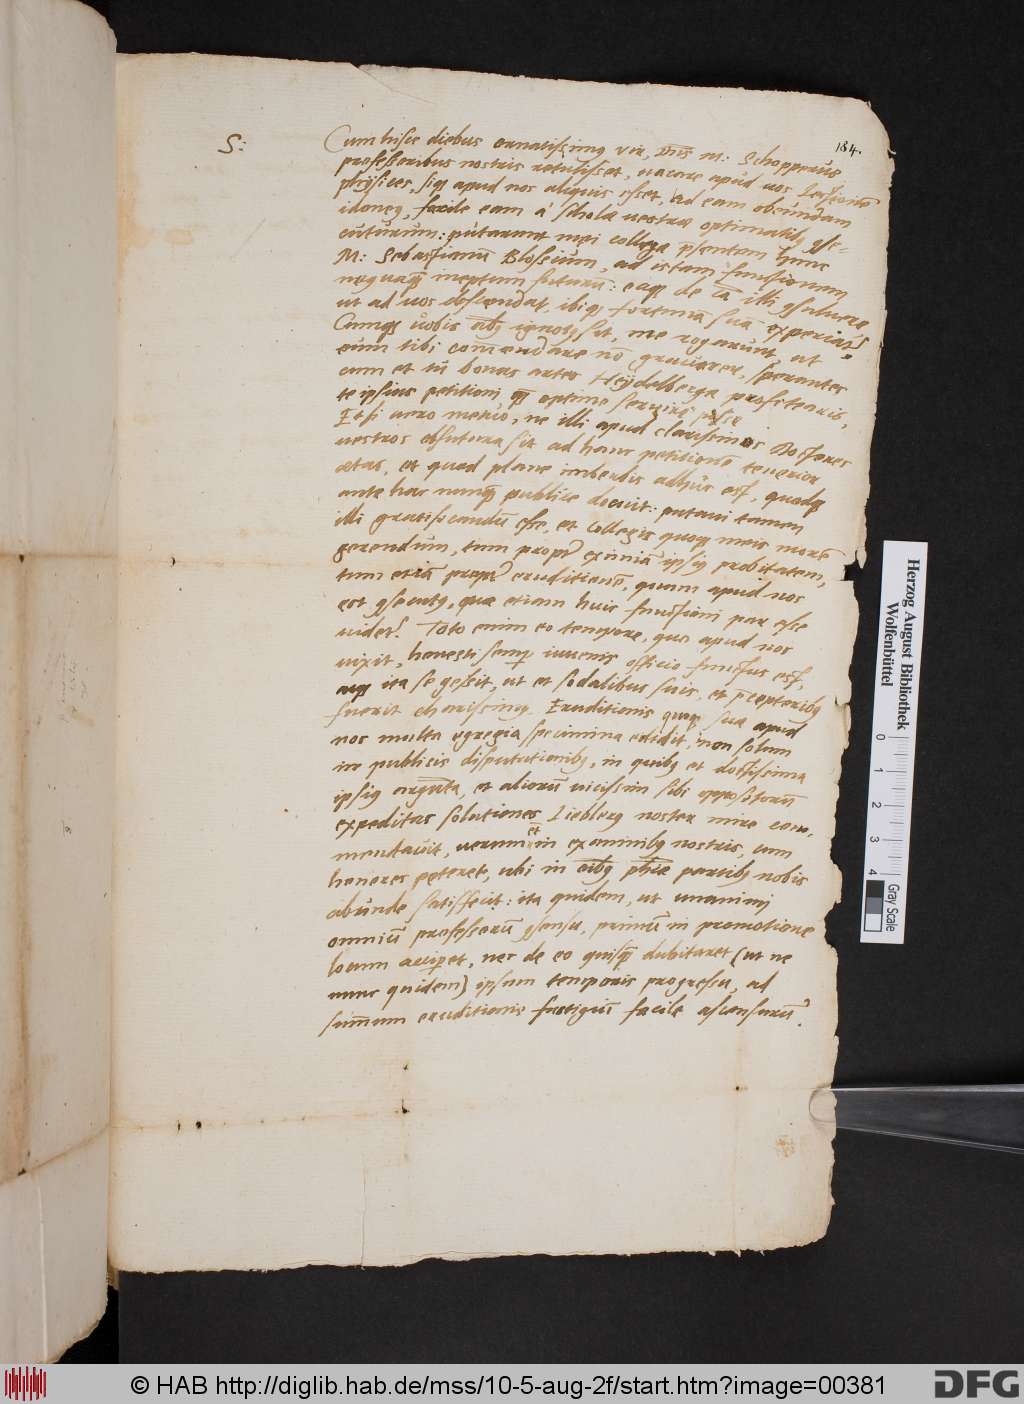 184.
S:
Cum hisce diebus ornatissimq vir, dns M: Schopperus
professoribus nostris retulisset, vacare apud vos Lectionē
physices, siq apud nos aliquis esset, ad eam obeundam
idoneq, facile eam à scholæ vestræ optimatibq
cuturum: putarunt mei collegæ psentem hunc
M: Sebastianū Blossium, ad istam functionem
nequaquā ineptum futurū: eaq de cā illi
ut ad vos descendat, ibiq fortunā suā experiat
Cumq vobis ignotq sit, me rogarunt, ut
eum tibi commendare nō gravarer, sperantes
cum et tu bonas artes Heydelbergæ profitearis,
te ipsius petitioni, optime servire posse
Etsi vero metuo, ne illi apud clarissimos Doctores
vestros obfutura sit ad hanc petitionē tenerior
ætas, et quod plane imberbis adhuc est, quodq
ante hac nunquā publice docuit: putavi tamen
illi gratificandū esse, et Collegis quoq meis morē
gerendum, tum propt eximiā ipsiq probitatem,
tum etiā propt eruditionē, quam apud nos
est quæ etiam huic functioni par esse
videt. Toto enim eo tempore, quo apud nos
vixit, honesti semp iuvenis officio functus est,
atq ita se gessit, ut et sodalibus suis, et pceptoribq
fuerit charissimq. Eruditionis quoq suæ apud
nos multa egregia specimina edidit, non solum
in publicis disputationibq, in quibq et doctissima
ipsiq argumta, et aliorū vicissim sibi oppositorū
expeditas solutiones Lieblerq noster mire com-
mendavit, verum et in examinibq nostris, cum
honores peteret, ubi in oibq phiæ partibq nobis
abunde satisfecit: ita quidem, ut unanimi
omniū professorū primū in promotione
locum acciperet, nec de eo quisquā dubitaret (ut ne
nunc quidem) ipsum temporis progressu, ad
summum eruditionis fastigiū facile ascensurū.
Herzog August Bibliothek
Wolfenbüttel
0 1 2 3 4
Gray Scale
© HAB http://diglib.hab.de/mss/10-5-aug-2f/start.htm?image=00381
DFG